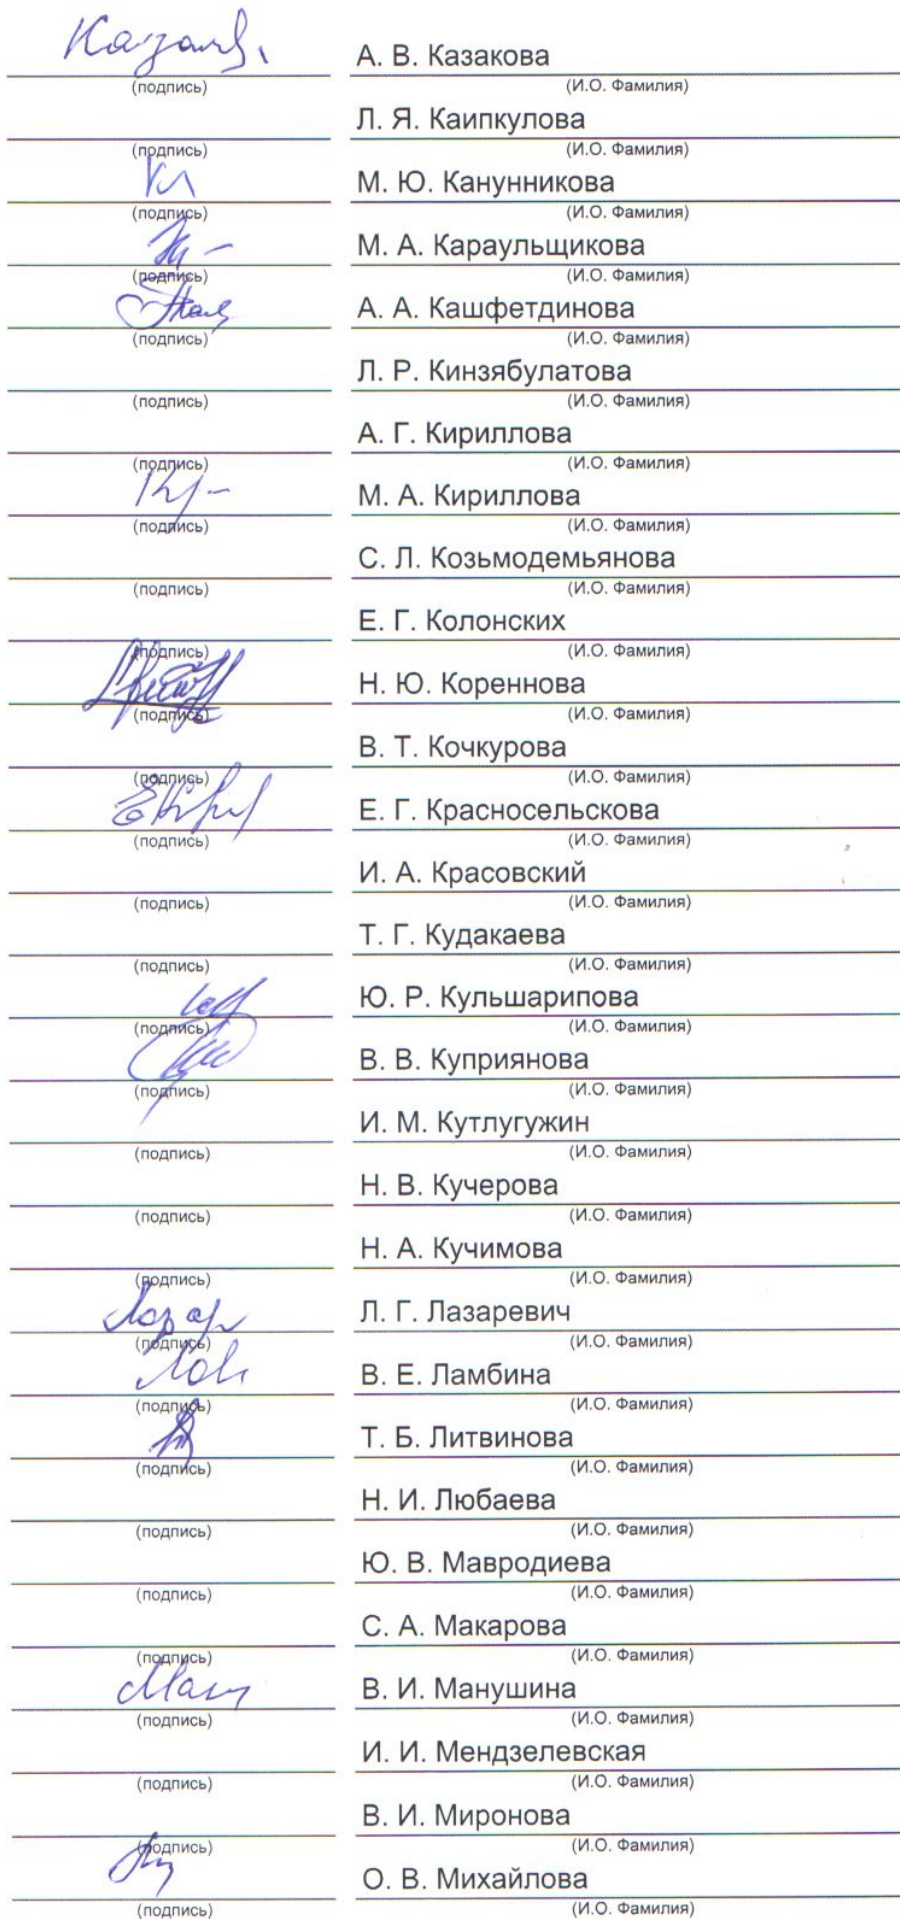 А. В. Казакова
(подпись) (И.О. Фамилия)
Л. Я. Каипкулова
(подпись) (И.О. Фамилия)
М. Ю. Канунникова
(подпись) (И.О. Фамилия)
М. А. Караульщикова
(подпись) (И.О. Фамилия)
А. А. Кашфетдинова
(подпись) (И.О. Фамилия)
Л. Р. Кинзябулатова
(подпись) (И.О. Фамилия)
А. Г. Кириллова
(подпись) (И.О. Фамилия)
М. А. Кириллова
(подпись) (И.О. Фамилия)
С. Л. Козьмодемьянова
(подпись) (И.О. Фамилия)
Е. Г. Колонских
(подпись) (И.О. Фамилия)
Н. Ю. Кореннова
(подпись) (И.О. Фамилия)
В. Т. Кочкурова
(подпись) (И.О. Фамилия)
Е. Г. Красносельскова
(подпись) (И.О. Фамилия)
И. А. Красовский
(подпись) (И.О. Фамилия)
Т. Г. Кудакаева
(подпись) (И.О. Фамилия)
Ю. Р. Кульшарипова
(подпись) (И.О. Фамилия)
В. В. Куприянова
(подпись) (И.О. Фамилия)
И. М. Кутлугужин
(подпись) (И.О. Фамилия)
Н. В. Кучерова
(подпись) (И.О. Фамилия)
Н. А. Кучимова
(подпись) (И.О. Фамилия)
Л. Г. Лазаревич
(подпись) (И.О. Фамилия)
В. Е. Ламбина
(подпись) (И.О. Фамилия)
Т. Б. Литвинова
(подпись) (И.О. Фамилия)
Н. И. Любаева
(подпись) (И.О. Фамилия)
Ю. В. Мавродиева
(подпись) (И.О. Фамилия)
С. А. Макарова
(подпись) (И.О. Фамилия)
В. И. Манушина
(подпись) (И.О. Фамилия)
И. И. Мендзелевская
(подпись) (И.О. Фамилия)
В. И. Миронова
(подпись) (И.О. Фамилия)
О. В. Михайлова
(подпись) (И.О. Фамилия)